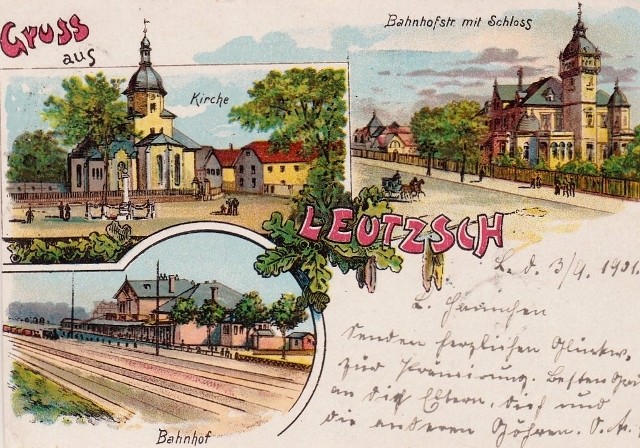 Gruss
aus
Kirche
Bahnhofstr. mit Schloss
LEUTZSCH
Bahnhof
L. d. 3/9. 1901.
L. Hannchen
Senden herzlichen Glückw.
zur Premirung. Besten
an die Eltern, dich und
die anderen Göhren.